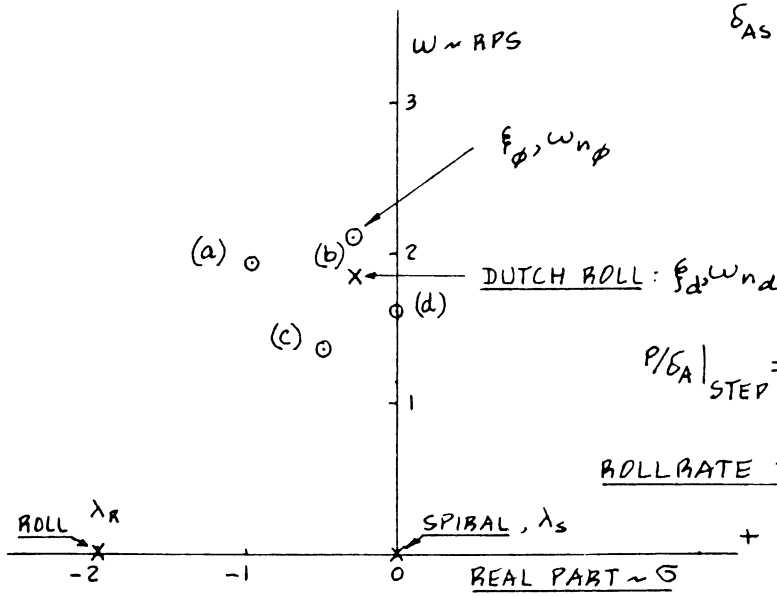 δAS
ω ~ RPS
3
ξφ, ωnφ
(a)
(b)
2
DUTCH ROLL : ξd, ωnd
(d)
(c)
P/δA|STEP =
1
ROLLRATE
ROLL λR
SPIRAL, λS
+
-2
-1
0
REAL PART ~ σ